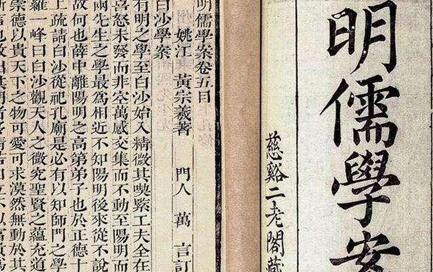 明儒學案
慈谿二老閣藏
明儒學案卷五目
姚江 黃宗羲著 門人 萬 言訂
白沙學案
有明之學至白沙始入精微其喫緊工夫全在
喜怒未發而非空萬感交集而不動至陽明而
兩先生之學最為相近不知陽明後來從不說
故何也薛中離陽明之高第弟子也於正德十
上疏請白沙從祀孔廟是必有以知師門之學
羅一峰曰白沙觀天人之微究聖賢之蘊充道
崇德以貴天下之物可愛可求漠然無動於其